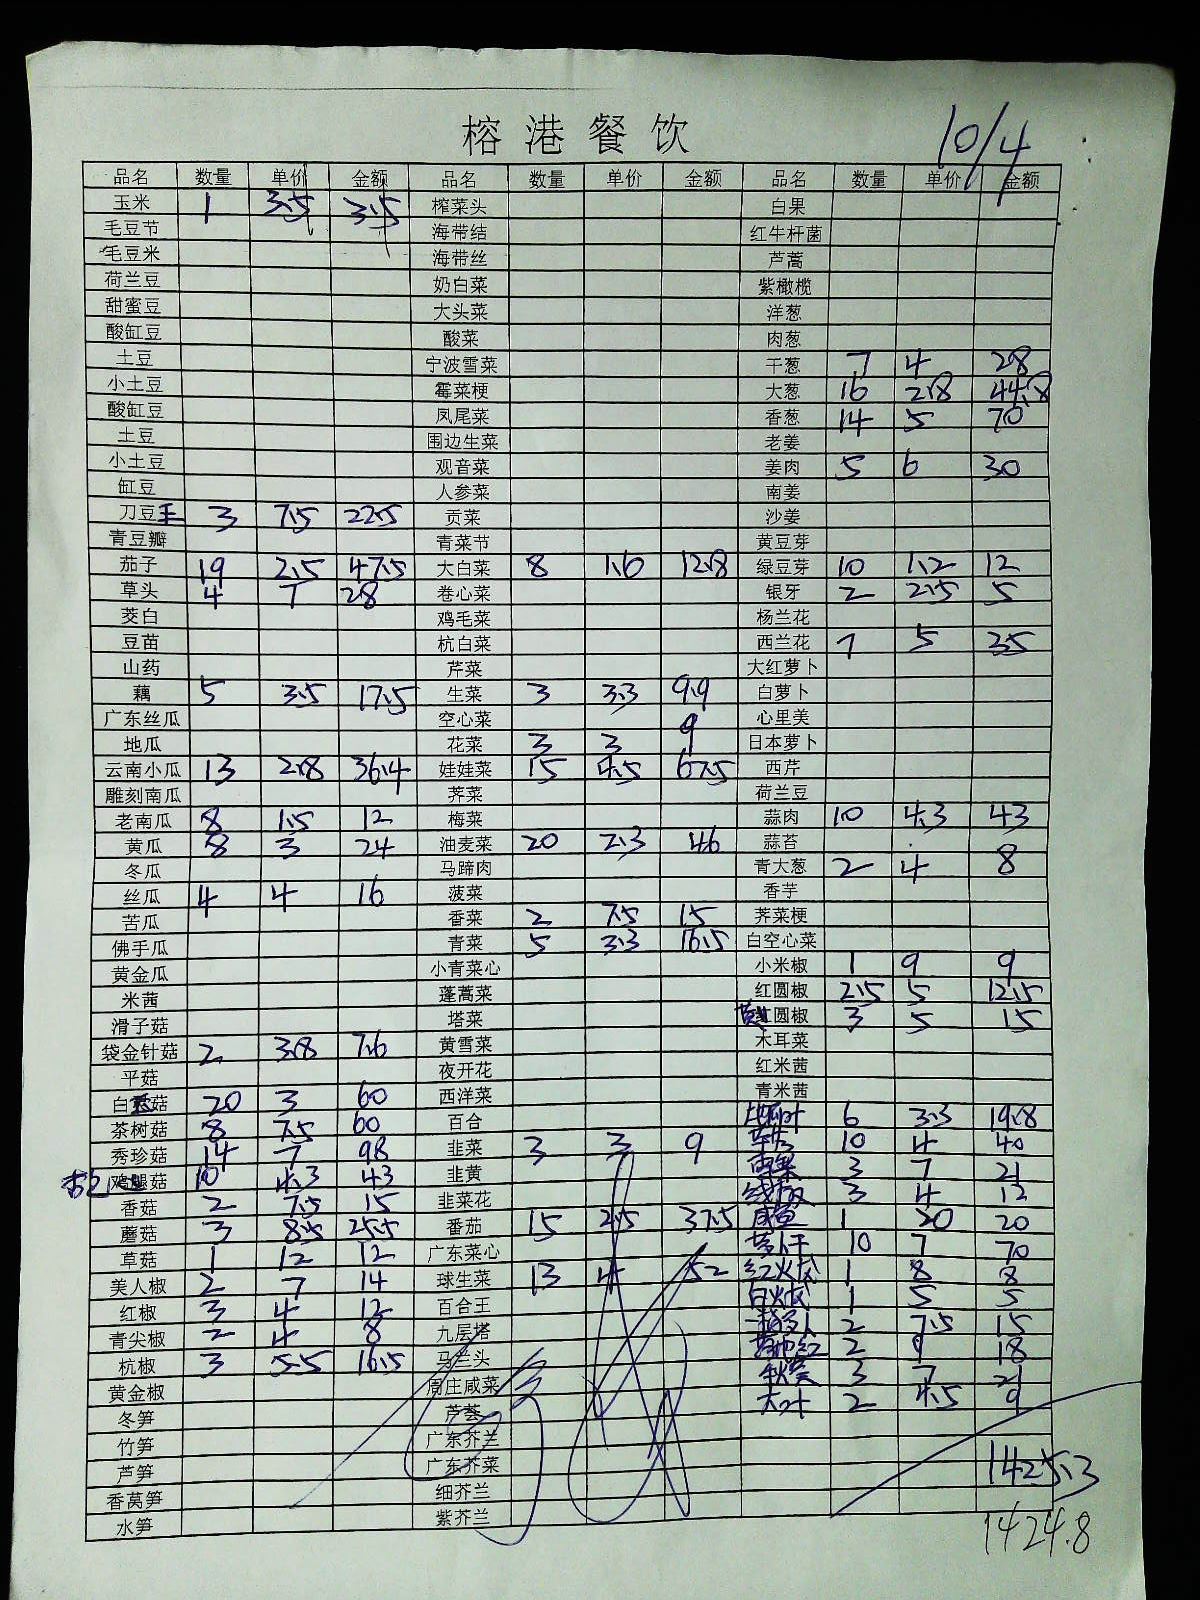 榕港餐饮
10/4
品名 数量 单价 金额 品名 数量 单价 金额 品名 数量 单价 金额
玉米 1 3.5 3.5 榨菜头 白果
毛豆节 海带结 红牛杆菌
毛豆米 海带丝 芦蒿
荷兰豆 奶白菜 紫橄榄
甜蜜豆 大头菜 洋葱
酸缸豆 酸菜 肉葱
土豆 宁波雪菜 干葱 7 4 28
小土豆 霉菜梗 大葱 16 2.8 44.8
酸缸豆 凤尾菜 香葱 14 5 70
土豆 围边生菜 老姜
小土豆 观音菜 姜肉 5 6 30
缸豆 人参菜 南姜
刀豆王 3 7.5 22.5 贡菜 沙姜
青豆瓣 青菜节 黄豆芽
茄子 19 2.5 47.5 大白菜 8 1.6 12.8 绿豆芽 10 1.2 12
草头 4 7 28 卷心菜 银牙 2 2.5 5
茭白 鸡毛菜 杨兰花
豆苗 杭白菜 西兰花 7 5 35
山药 芹菜 大红萝卜
藕 5 3.5 17.5 生菜 3 3.3 9.9 白萝卜
广东丝瓜 空心菜 心里美
地瓜 花菜 3 3 9 日本萝卜
云南小瓜 13 2.8 36.4 娃娃菜 15 4.5 67.5 西芹
雕刻南瓜 荠菜 荷兰豆
老南瓜 8 1.5 12 梅菜 蒜肉 10 4.3 43
黄瓜 8 3 24 油麦菜 20 2.3 46 蒜苔
冬瓜 马蹄肉 青大葱 2 4 8
丝瓜 4 4 16 菠菜 香芋
苦瓜 香菜 2 7.5 15 荠菜梗
佛手瓜 青菜 5 3.3 16.5 白空心菜
黄金瓜 小青菜心 小米椒 1 9 9
米茜 蓬蒿菜 红圆椒 2.5 5 12.5
滑子菇 塔菜 圆椒 3 5 15
袋金针菇 2 3.8 7.6 黄雪菜 木耳菜
平菇 夜开花 红米茜
白菇 20 3 60 西洋菜 青米茜
茶树菇 8 7.5 60 百合 6 3.3 19.8
秀珍菇 14 7 98 韭菜 3 3 9 10 4 40
菇 10 4.3 43 韭黄 3 7 21
香菇 2 7.5 15 韭菜花 线椒 3 4 12
蘑菇 3 8.5 25.5 番茄 15 2.5 37.5 咸鱼 1 20 20
草菇 1 12 12 广东菜心 萝卜干 10 7 70
美人椒 2 7 14 球生菜 13 4 52 红火龙 1 8 8
红椒 3 4 12 百合王 白火龙 1 5 5
青尖椒 2 4 8 九层塔 2 7.5 15
杭椒 3 5.5 16.5 马兰头 2 9 18
黄金椒 周庄咸菜 秋葵 3 7 21
冬笋 芦荟 大叶 2 4.5 9
竹笋 广东芥兰
芦笋 广东芥菜 1425.3
香莴笋 细芥兰
水笋 紫芥兰 1424.8